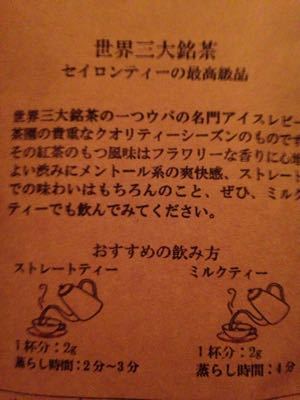 世界三大銘茶
セイロンティーの最高級品
世界三大銘茶の一つウバの名門アイスレビー
茶園の貴重なクオリティーシーズンのものです
その紅茶のもつ風味はフラワリーな香りに心地
よい渋みにメントール系の爽快感、ストレート
での味わいはもちろんのこと、ぜひ、ミルク
ティーでも飲んでみてください。
おすすめの飲み方
ストレートティー ミルクティー
1杯分：2g 1杯分：2g
蒸らし時間：2分～3分 蒸らし時間：4分